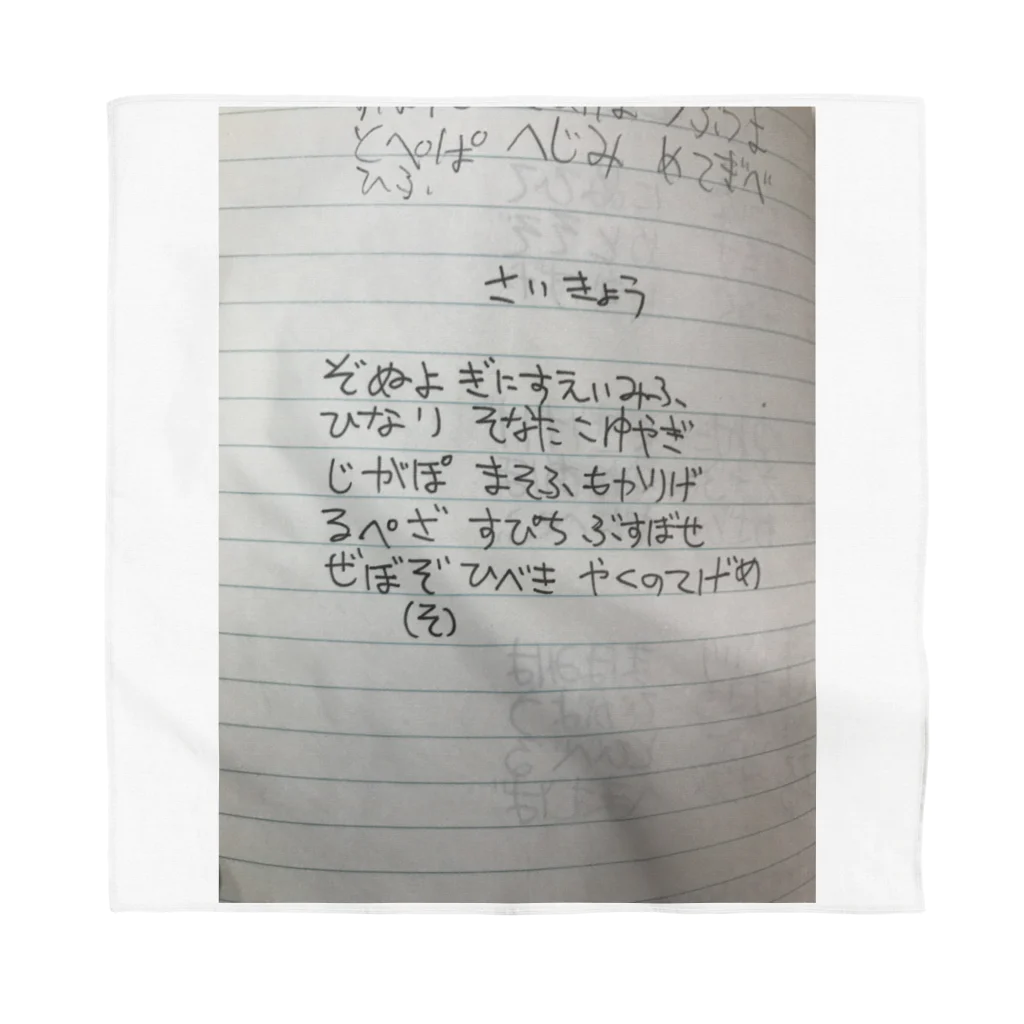 とぺぱ へじみ めてぎべ
ひふ
さいきょう
ぞぬよ ぎにすえいみふ、
ひなり そなた こゆやぎ
じがぽ まそふ、もかりげ
るぺざ すぴち ぶすばせ
ぜぼぞ ひべき やくのてげめ
(そ)